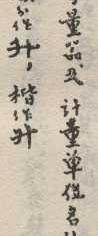 量器及計量單位名
分作升，楷作升